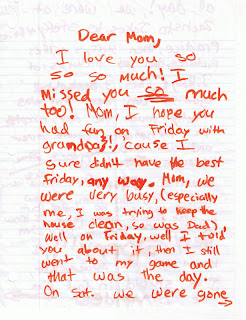 Dear Mom,
I love you so
so so much! I
missed you so much
too! Mom, I hope you
had fun on Friday with
grandpa!, 'cause I
sure didn't have the best
friday, any way. Mom, we
were very busy, (especially
me, I was trying to keep the
house clean, so was Dad)
well on Friday, well I told
you about it, then I still
went to my game and
that was the day.
On Sat. we were gone